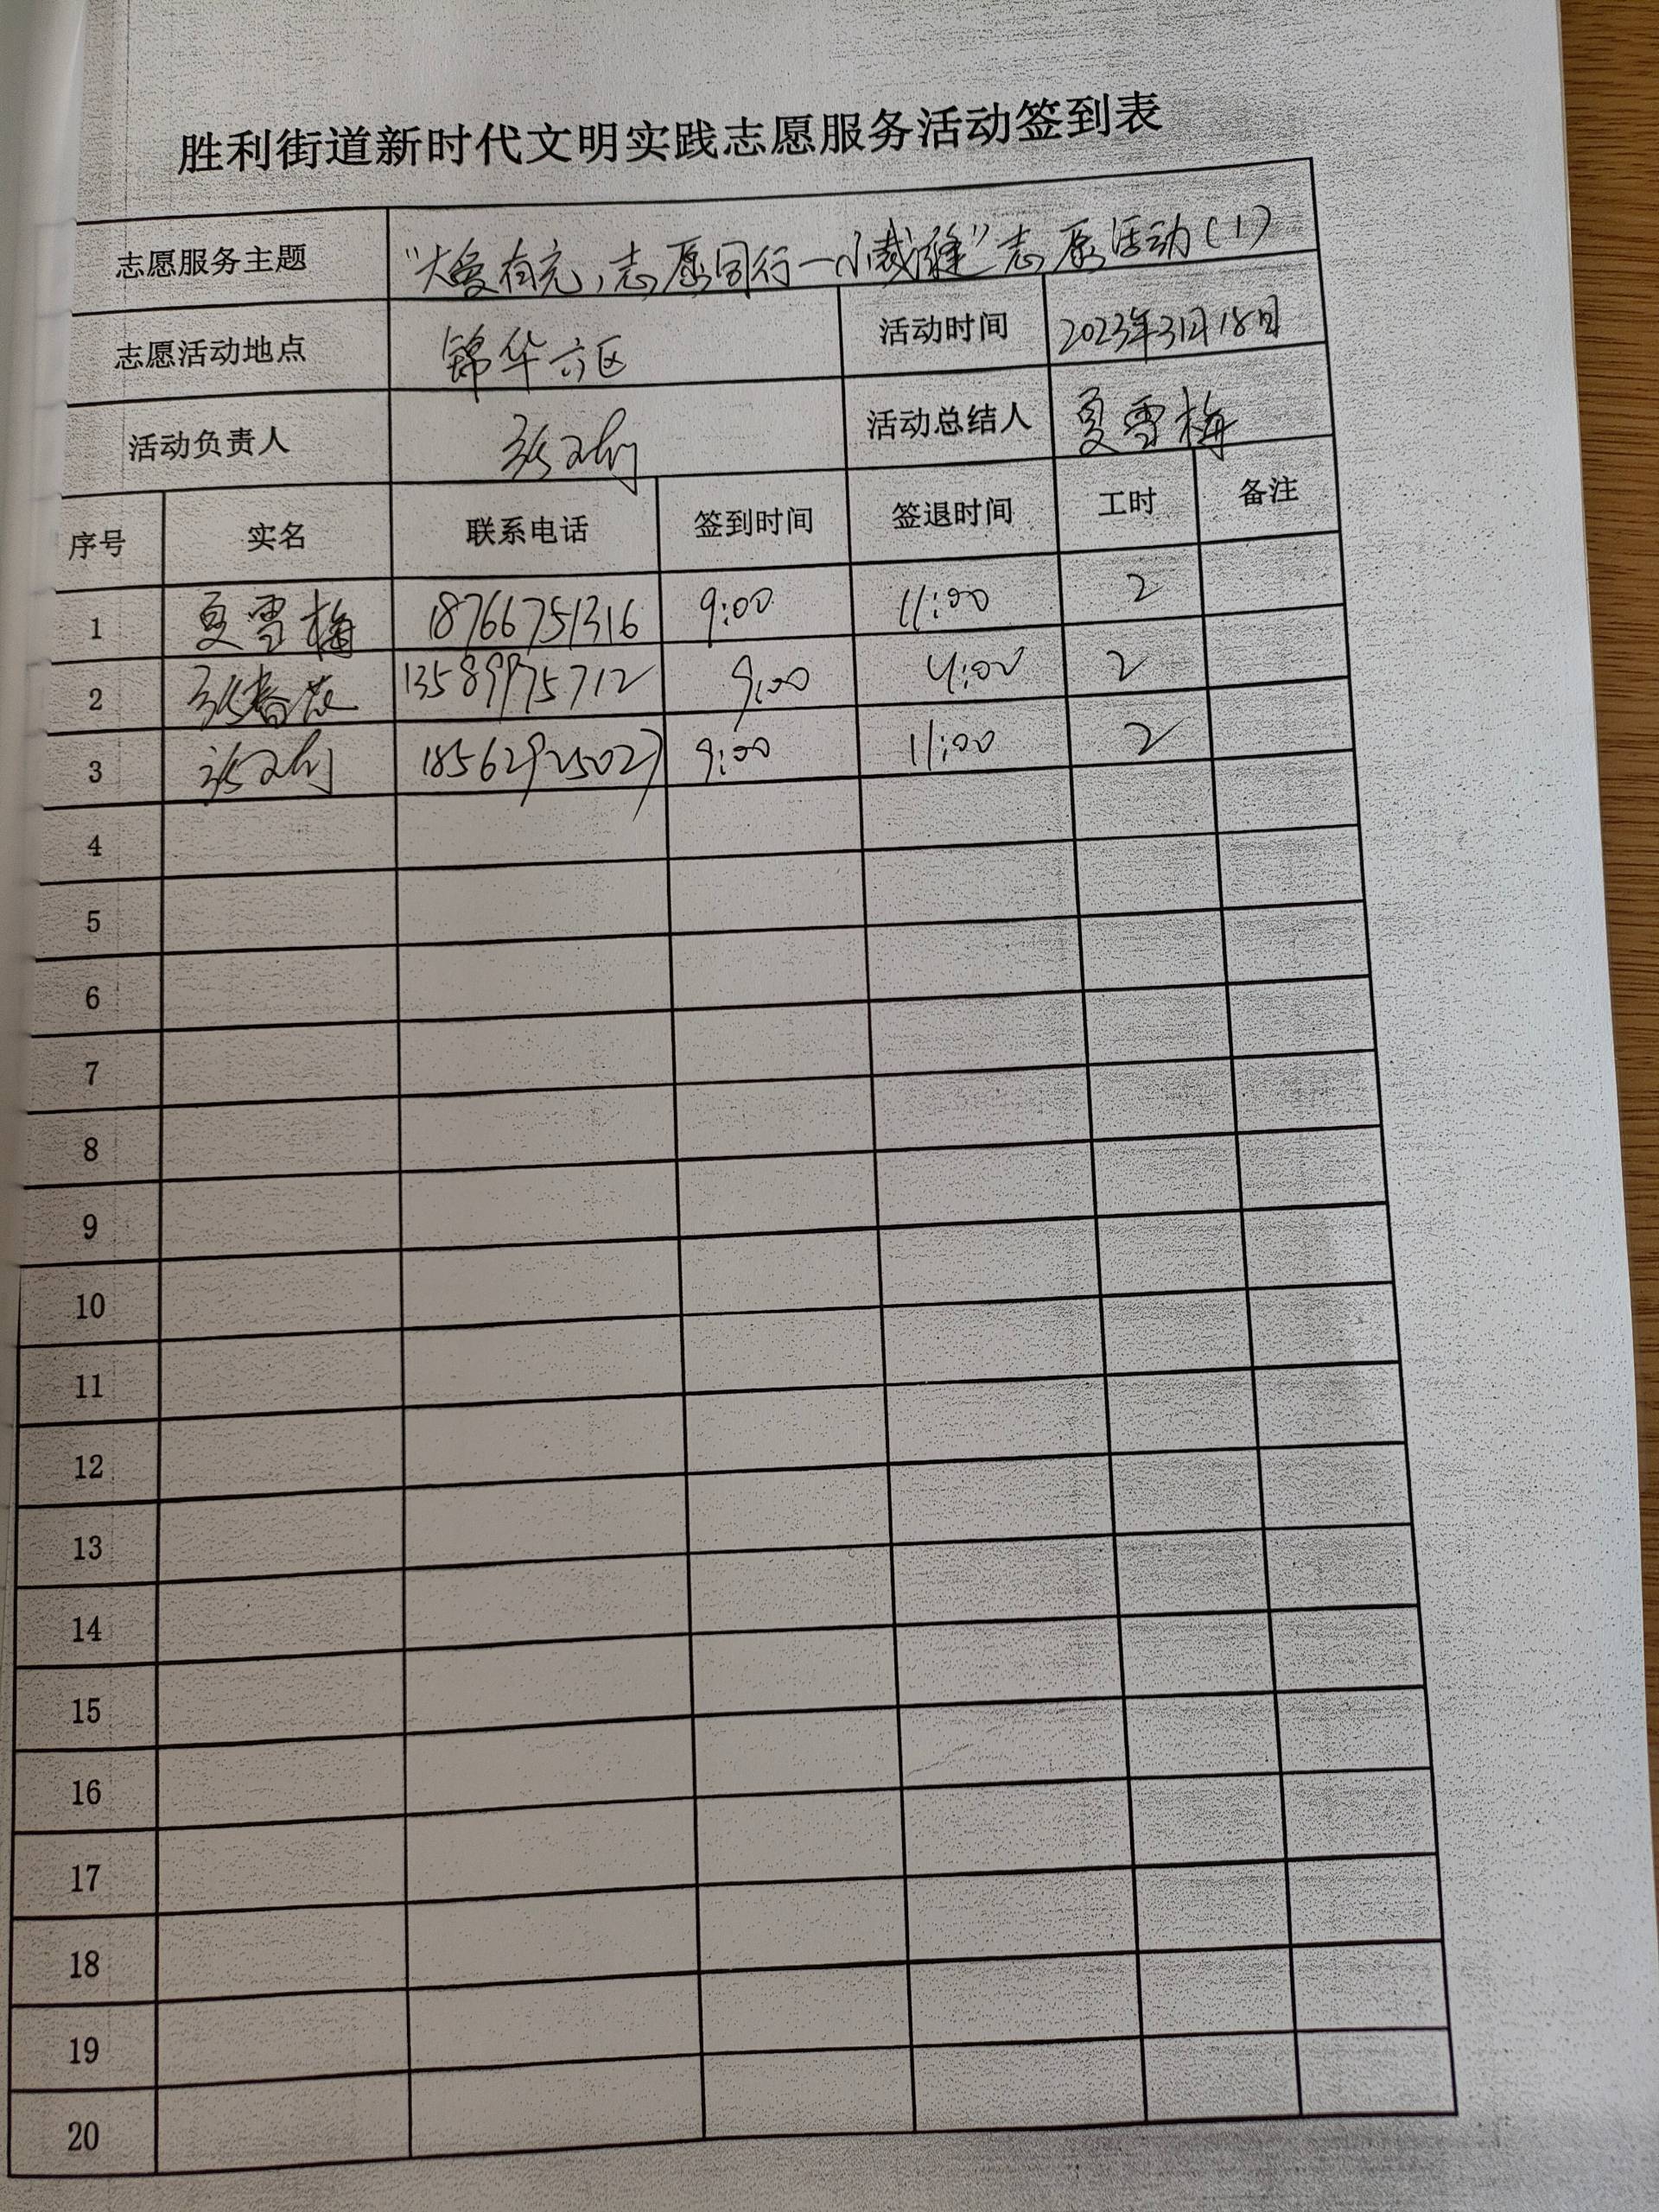 胜利街道新时代文明实践志愿服务活动签到表
志愿服务主题 “大爱有克，志愿同行—小裁缝”志愿活动(1)
志愿活动地点 锦华六区 活动时间 2023年3月18日
活动负责人 活动总结人 夏雪梅
序号 实名 联系电话 签到时间 签退时间 工时 备注
1 夏雪梅 18766751316 9:00 11:00 2
2 张春 13589975712 9:00 11:00 2
3 18562925027 9:00 11:00 2
4
5
6
7
8
9
10
11
12
13
14
15
16
17
18
19
20